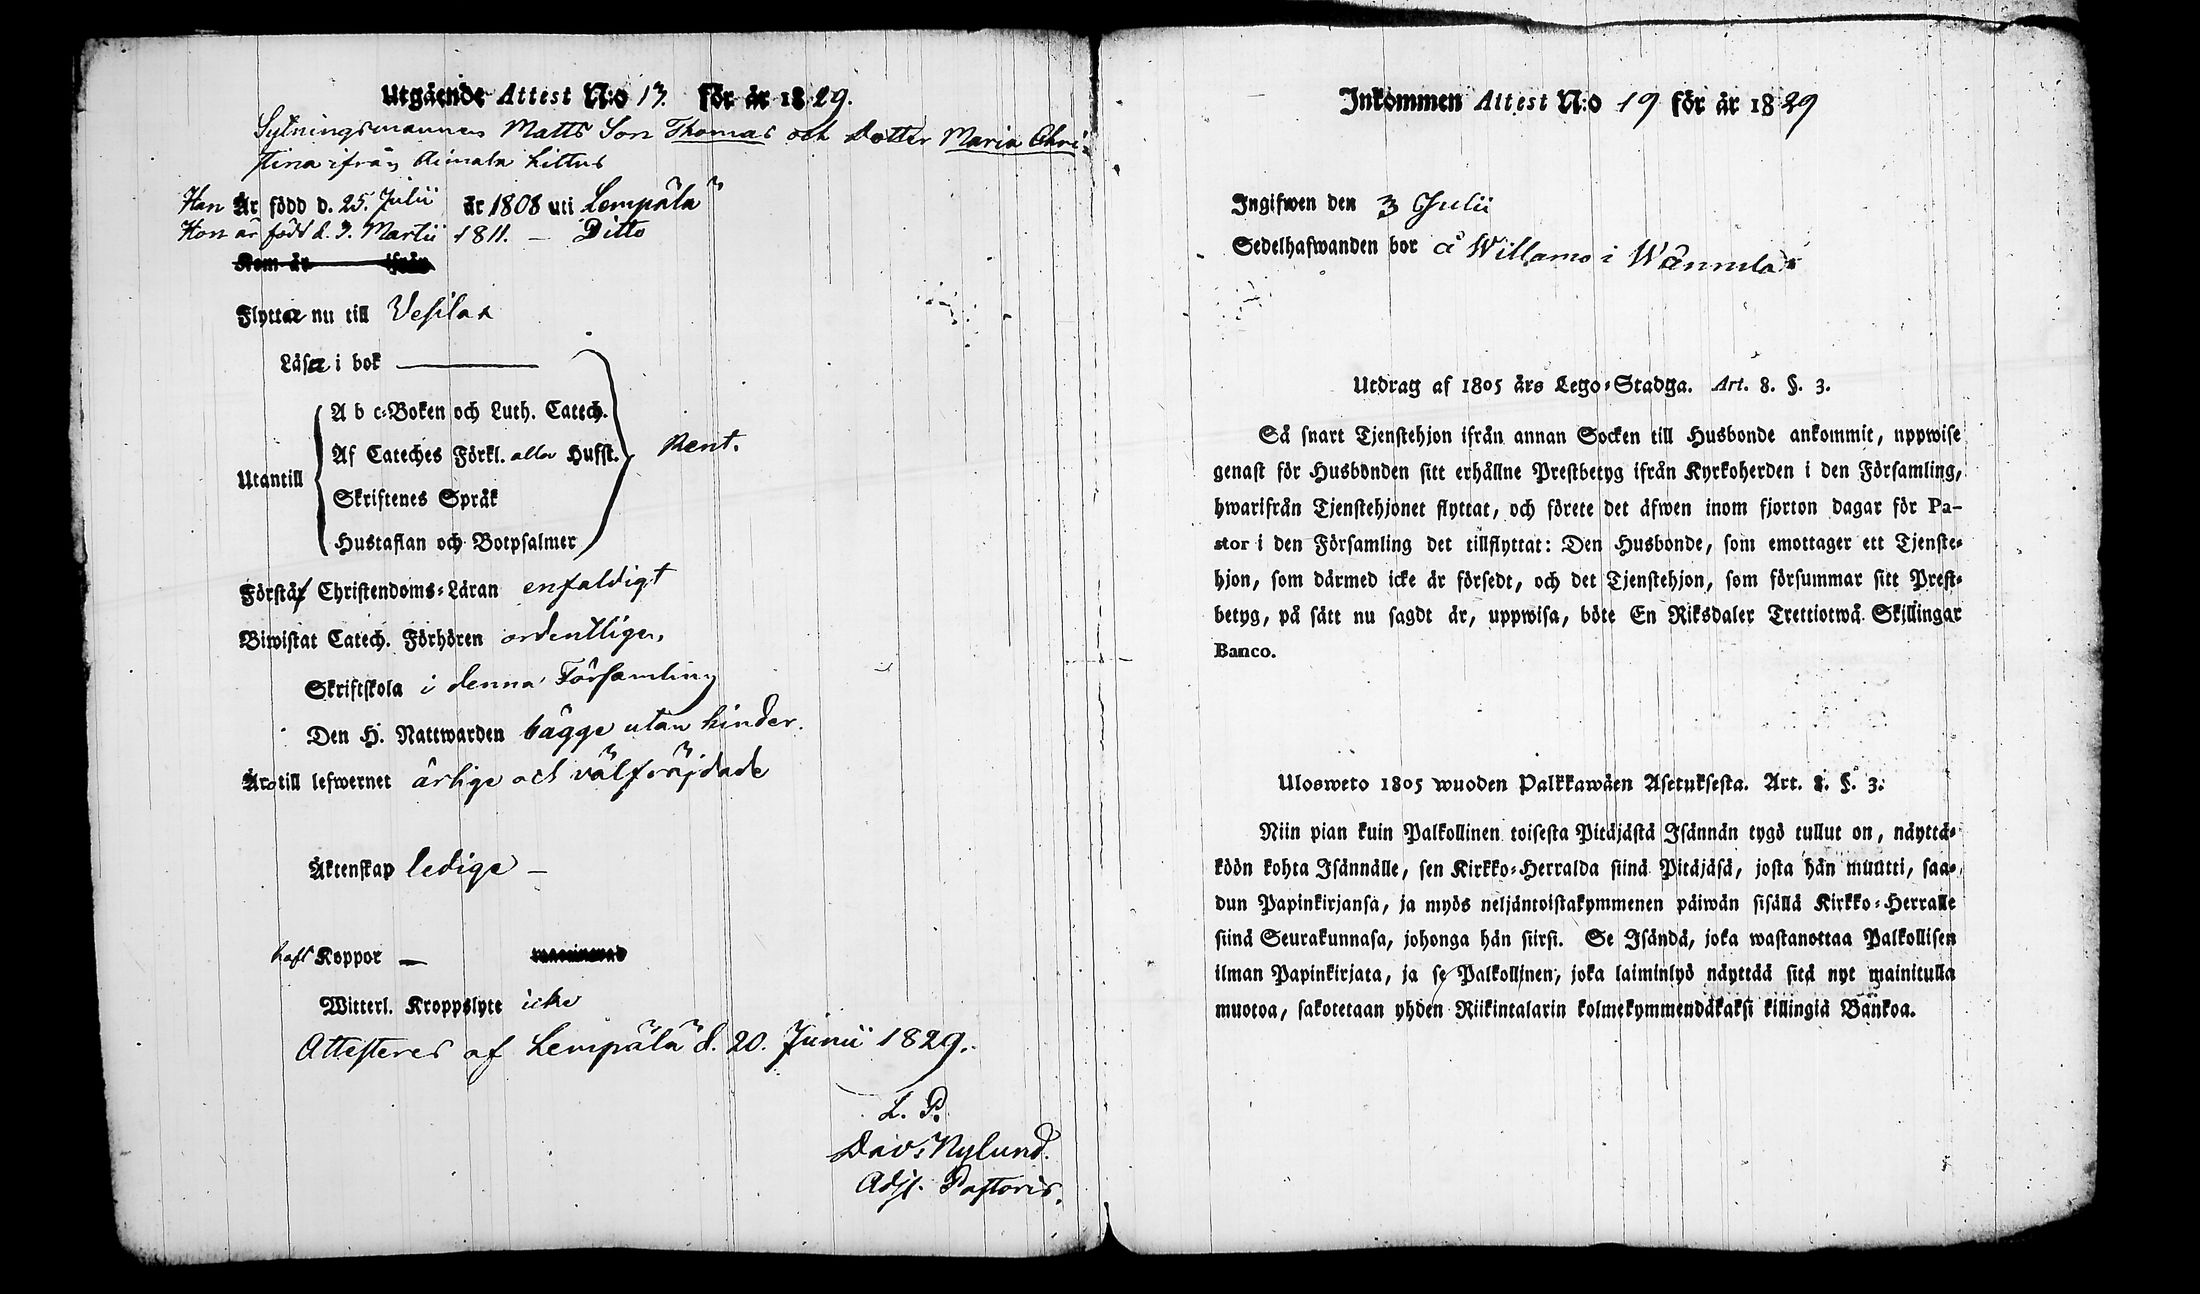 Utgående Attest N:o 13. för år 1829.
Sytningsmannens Matts Son Thomas och Dotter Maria Chri-
stina ifrån Aimala Kittus
Han Är född d. 25. Julii år 1808 uti Lempälä
Hon är född d. 9. Martii 1811. — Ditto
Kom år ifrån
Flytta nu till Vesilax
Läsa i bok
A b c-Boken och Luth. Catech.
Af Cateches Förkl. aller Hufst. Rent.
Utantill
Skriftenes Språk
Hustaflan och Botpsalmer
Förstå Christendoms-Läran enfaldigt
Biwistat Catech. Förhören ordentligen,
Skriftskola i denna Församling
Den H. Nattwarden bägge utan hinder.
Äro till lefwernet ärlige och välfräjdade
Äktenskap ledige —
haft Koppor —
Witterl. Kroppslyte icke
Attesteres af Lempälä d. 20. Junii 1829.
L. P.
Dav. Nylund.
Adj. Pastoris.
Inkommen Attest N:o 19 för år 1829
Ingifwen den 3 Julii
Sedelhafwanden bor å Willamo i Wännilä
Utdrag af 1805 års Lego-Stadga. Art. 8. §. 3.
Så snart Tjenstehjon ifrån annan Socken till Husbonde ankommit, uppwise
genast för Husbonden sitt erhållne Prestbetyg ifrån Kyrkoherden i den Församling,
hwarifrån Tjenstehjonet flyttat, och förete det äfwen inom fjorton dagar för Pa-
stor i den Församling det tillflyttat: Den Husbonde, som emottager ett Tjenste-
hjon, som därmed icke är försedt, och det Tjenstehjon, som försummar sitt Prest-
betyg, på sätt nu sagdt är, uppwisa, böte En Riksdaler Trettiotwå Skillingar
Banco.
Ulosweto 1805 wuoden Palkkawäen Asetuksesta. Art. 8. §. 3.
Niin pian kuin Palkollinen toisesta Pitäjästä Isännän tygö tullut on, näyttä-
köön kohta Isännälle, sen Kirkko-Herralda siinä Pitäjäsä, josta hän muutti, saa-
dun Papinkirjansa, ja myös neljäntoistakymmenen päiwän sisällä Kirkko-Herralle
siinä Seurakunnasa, johonga hän siirsi. Se Isändä, joka wastanottaa Palkollisen
ilman Papinkirjata, ja se Palkollinen, joka laiminlyö näyttää sitä nyt mainitulla
muotoa, sakotetaan yhden Riikintalarin kolmekymmendäkaksi killingiä Bankoa.